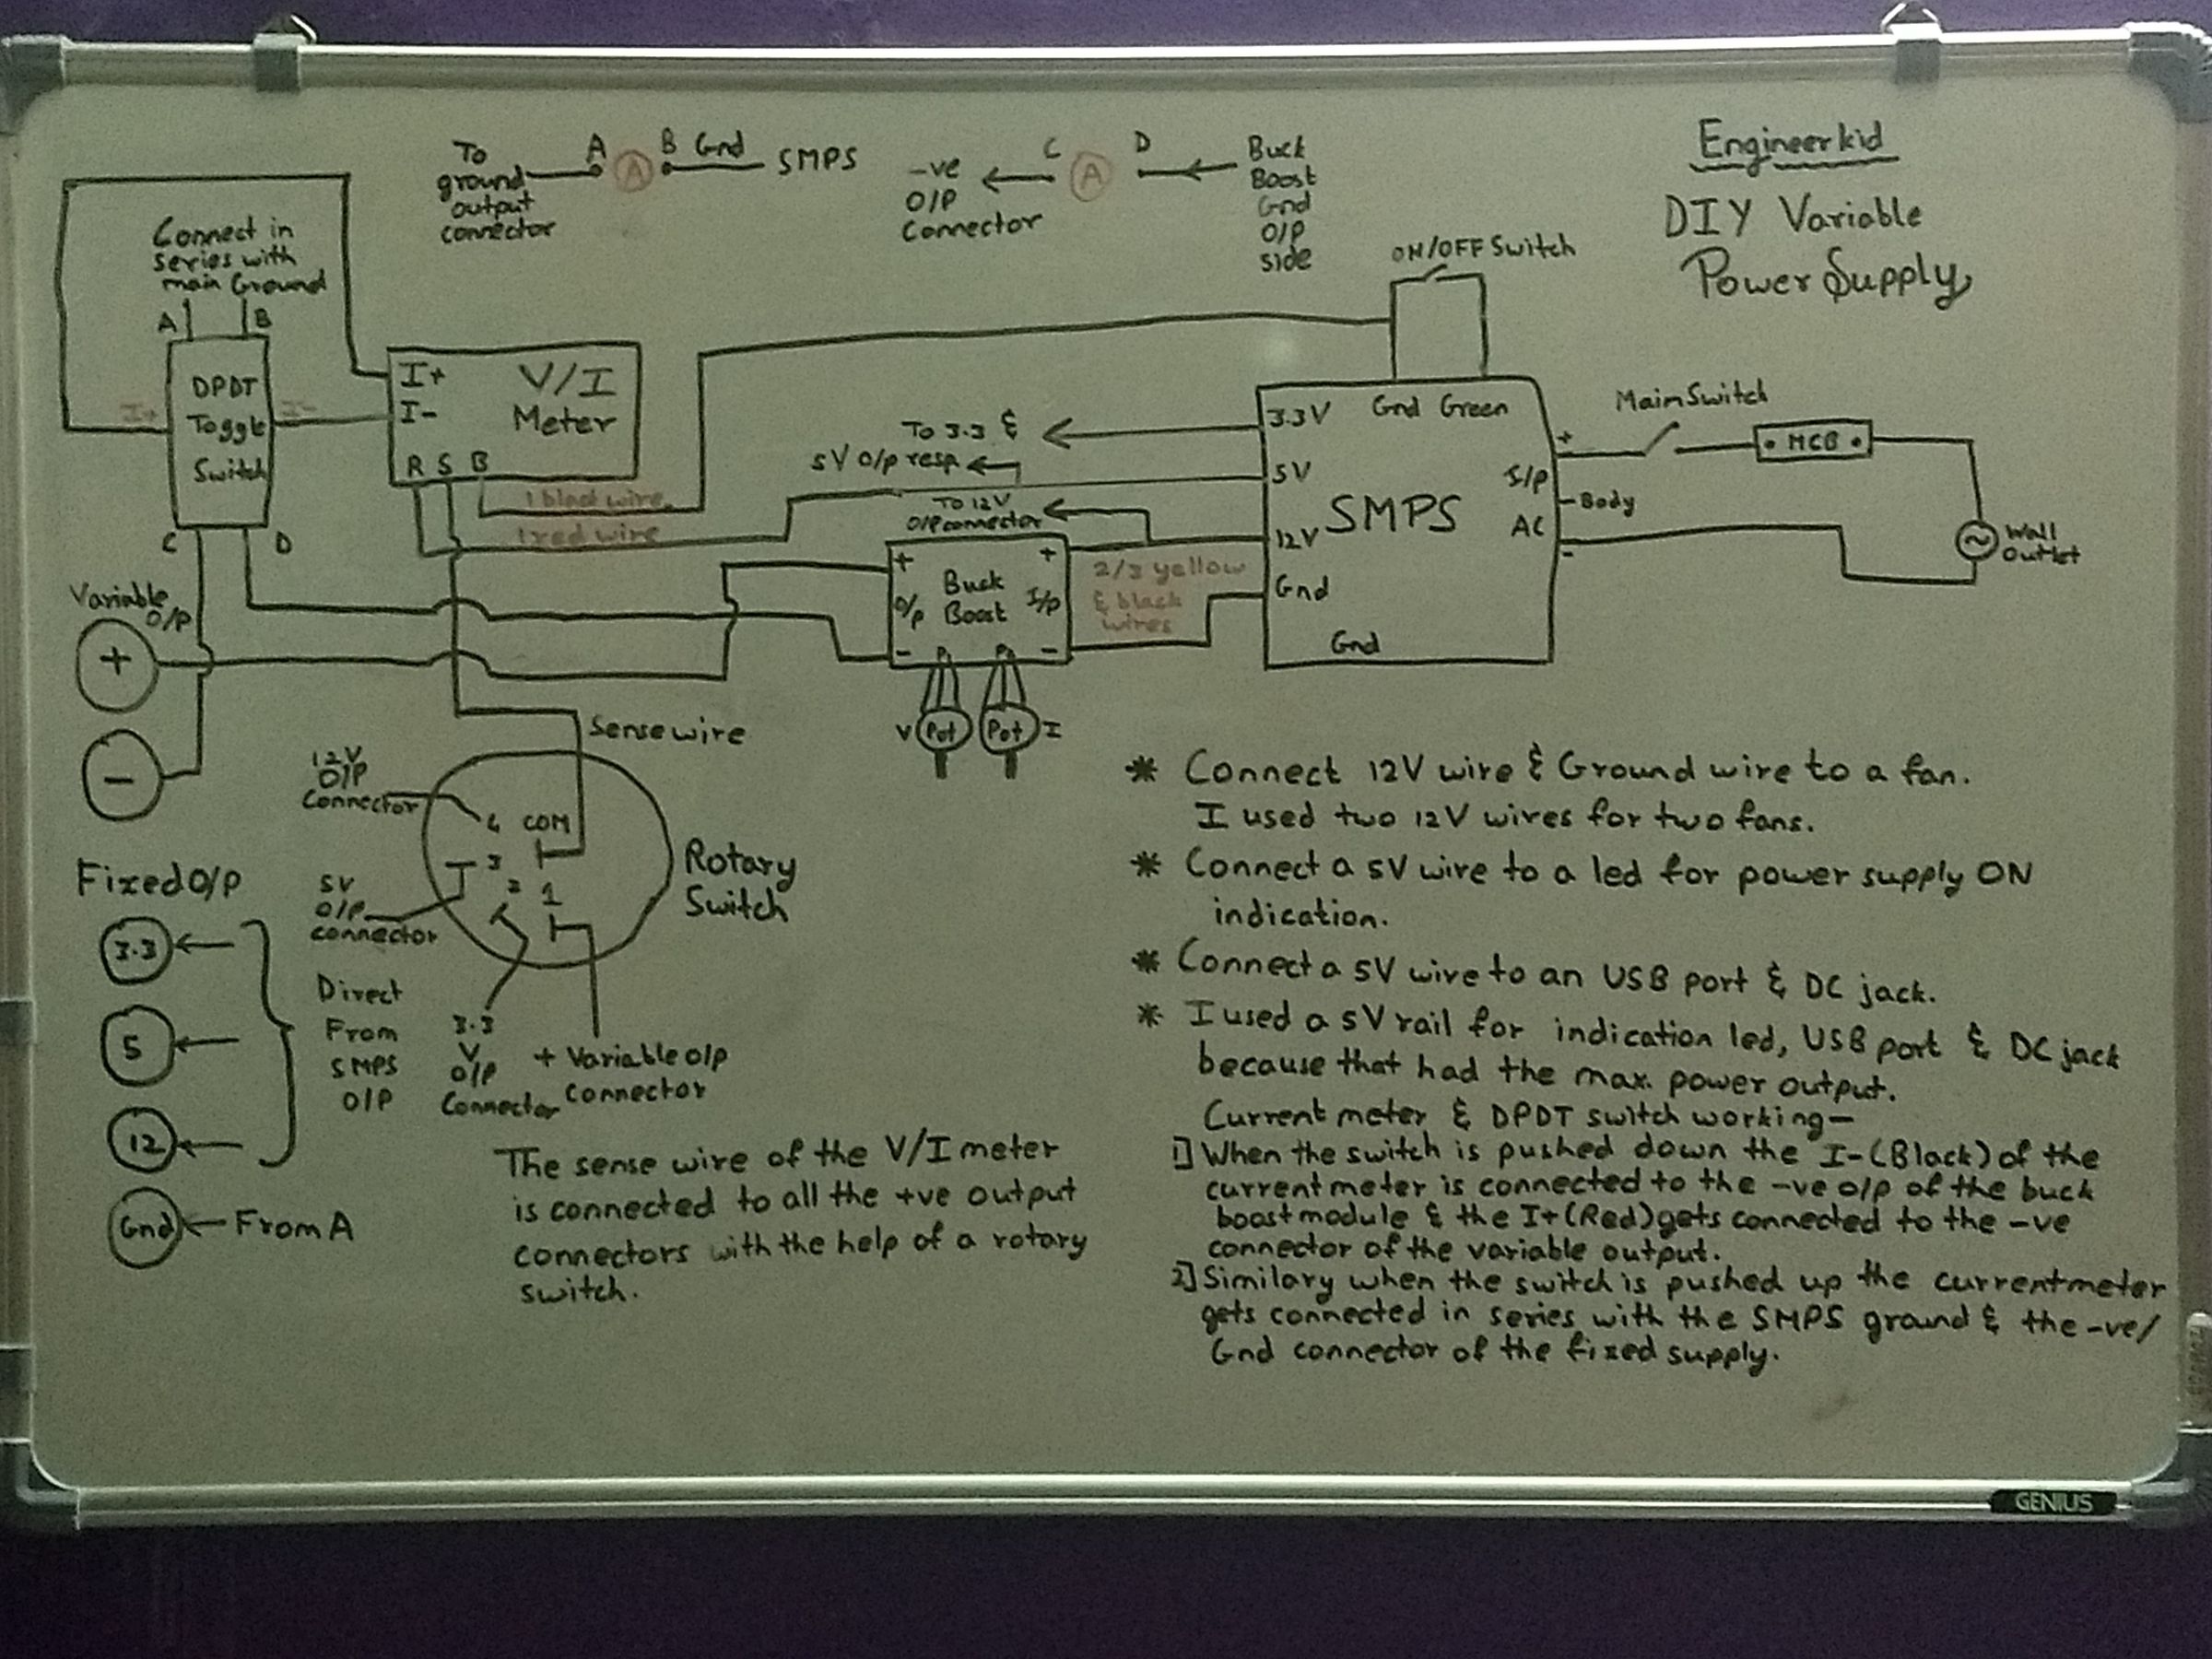 Engineerkid
DIY Variable
Power Supply
To
ground
output
connector
A
A
B
Gnd
SMPS
-ve
O/P
Connector
C
A
D
Buck
Boost
Gnd
O/P
side
Connect in
series with
main Ground
A
B
I+
DPDT
Toggle
Switch
I-
C
D
I+
I-
V/I
Meter
R S B
1 black wire
1 red wire
ON/OFF Switch
To 3.3 &
5V O/p resp.
To 12V
O/P connector
3.3V
Gnd Green
5V
12V
Gnd
Gnd
SMPS
I/P
AC
+
-Body
-
Main Switch
MCB
Wall
Outlet
+
+
O/p
Buck
Boost
I/p
-
-
P
P
2/3 yellow
& black
wires
V
Pot
Pot
I
Variable
O/P
+
-
Sense wire
12V
O/P
Connector
4
COM
3
2
1
5V
O/P
connector
Rotary
Switch
3.3
V
O/P
Connector
+ Variable O/p
Connector
Fixed O/P
3.3
5
12
Gnd
From A
Direct
From
SMPS
O/P
The sense wire of the V/I meter
is connected to all the +ve output
connectors with the help of a rotary
switch.
* Connect 12V wire & Ground wire to a fan.
I used two 12V wires for two fans.
* Connect a 5V wire to a led for power supply ON
indication.
* Connect a 5V wire to an USB port & DC jack.
* I used a 5V rail for indication led, USB port & DC jack
because that had the max. power output.
Current meter & DPDT switch working-
1] When the switch is pushed down the I-(Black) of the
current meter is connected to the -ve o/p of the buck
boost module & the I+(Red) gets connected to the -ve
connector of the variable output.
2] Similary when the switch is pushed up the currentmeter
gets connected in series with the SMPS ground & the -ve/
Gnd connector of the fixed supply.
GENIUS